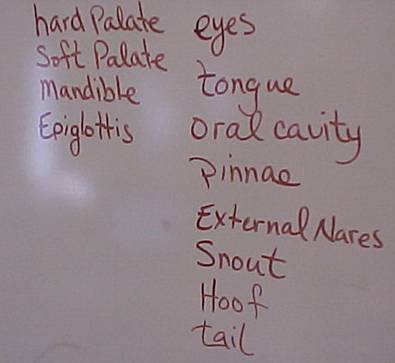 hard Palate
Soft Palate
Mandible
Epiglottis
eyes
tongue
oral cavity
Pinnae
External Nares
Snout
Hoof
tail